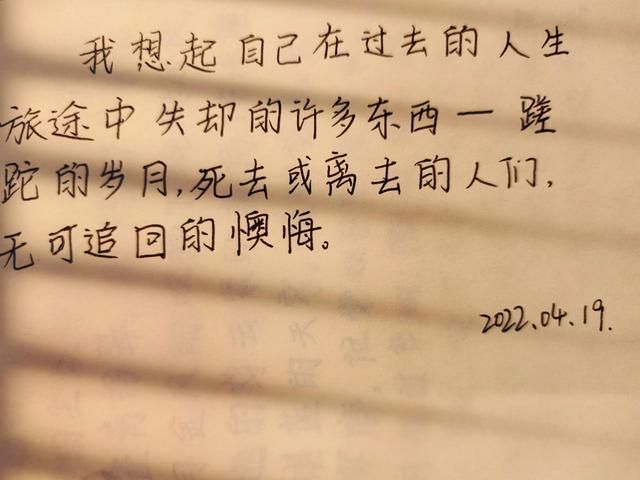 我想起自己在过去的人生
旅途中失却的许多东西一蹉
跎的岁月,死去或离去的人们,
无可追回的懊悔。
2022.04.19.